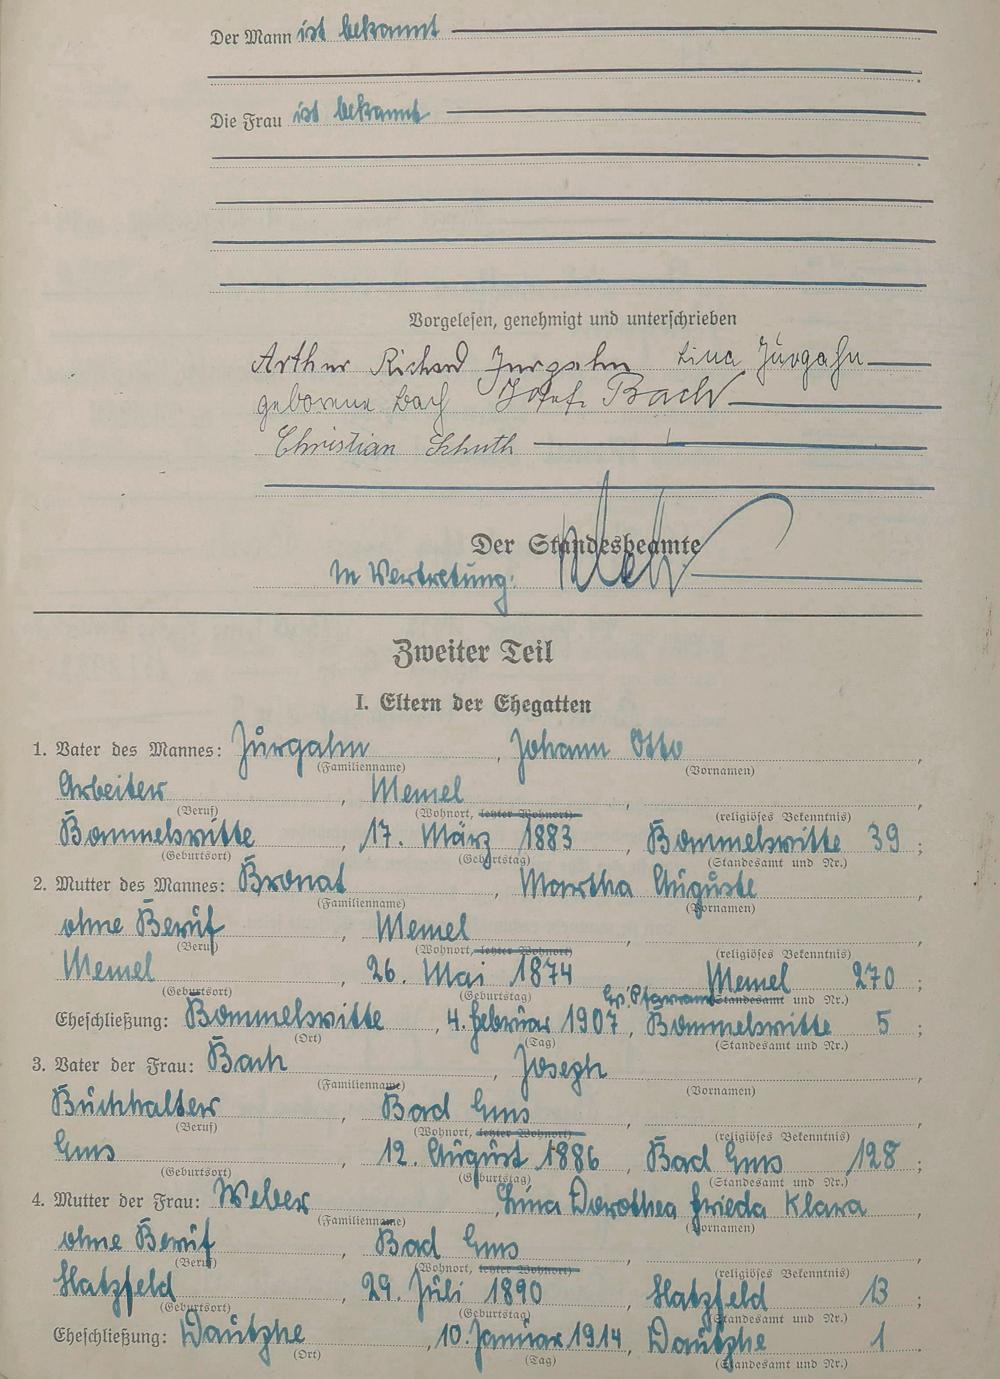 Der Mann ist bekannt
Die Frau ist bekannt
Vorgelesen, genehmigt und unterschrieben
Arthur Richard Jurgahn Lina Jurgahn
geborene Bach Josef Bach
Christian Schuth
Der Standesbeamte
In Vertretung:
Zweiter Teil
I. Eltern der Ehegatten
1. Vater des Mannes: Jurgahn, Johann Otto,
(Familienname) (Vornamen)
Arbeiter, Memel,
(Beruf) (Wohnort, letzter Wohnort) (religiöses Bekenntnis)
Bommelsvitte, 17. März 1883, Bommelsvitte 39;
(Geburtsort) (Geburtstag) (Standesamt und Nr.)
2. Mutter des Mannes: Bronat, Martha Auguste,
(Familienname) (Vornamen)
ohne Beruf, Memel,
(Beruf) (Wohnort, letzter Wohnort) (religiöses Bekenntnis)
Memel, 26. Mai 1874 Memel 270;
(Geburtsort) (Geburtstag) (Standesamt und Nr.)
Eheschließung: Bommelsvitte, 4. Februar 1907, Bommelsvitte 5;
(Ort) (Tag) (Standesamt und Nr.)
3. Vater der Frau: Bach, Joseph,
(Familienname) (Vornamen)
Buchhalter, Bad Ems,
(Beruf) (Wohnort, letzter Wohnort) (religiöses Bekenntnis)
Ems, 12. August 1886, Bad Ems 128;
(Geburtsort) (Geburtstag) (Standesamt und Nr.)
4. Mutter der Frau: Weber, Lina Dorothea Frieda Klara,
(Familienname) (Vornamen)
ohne Beruf, Bad Ems,
(Beruf) (Wohnort, letzter Wohnort) (religiöses Bekenntnis)
Hatzfeld, 29. Juli 1890, Hatzfeld 13;
(Geburtsort) (Geburtstag) (Standesamt und Nr.)
Eheschließung: Dautphe, 10. Januar 1914, Dautphe 1.
(Ort) (Tag) (Standesamt und Nr.)